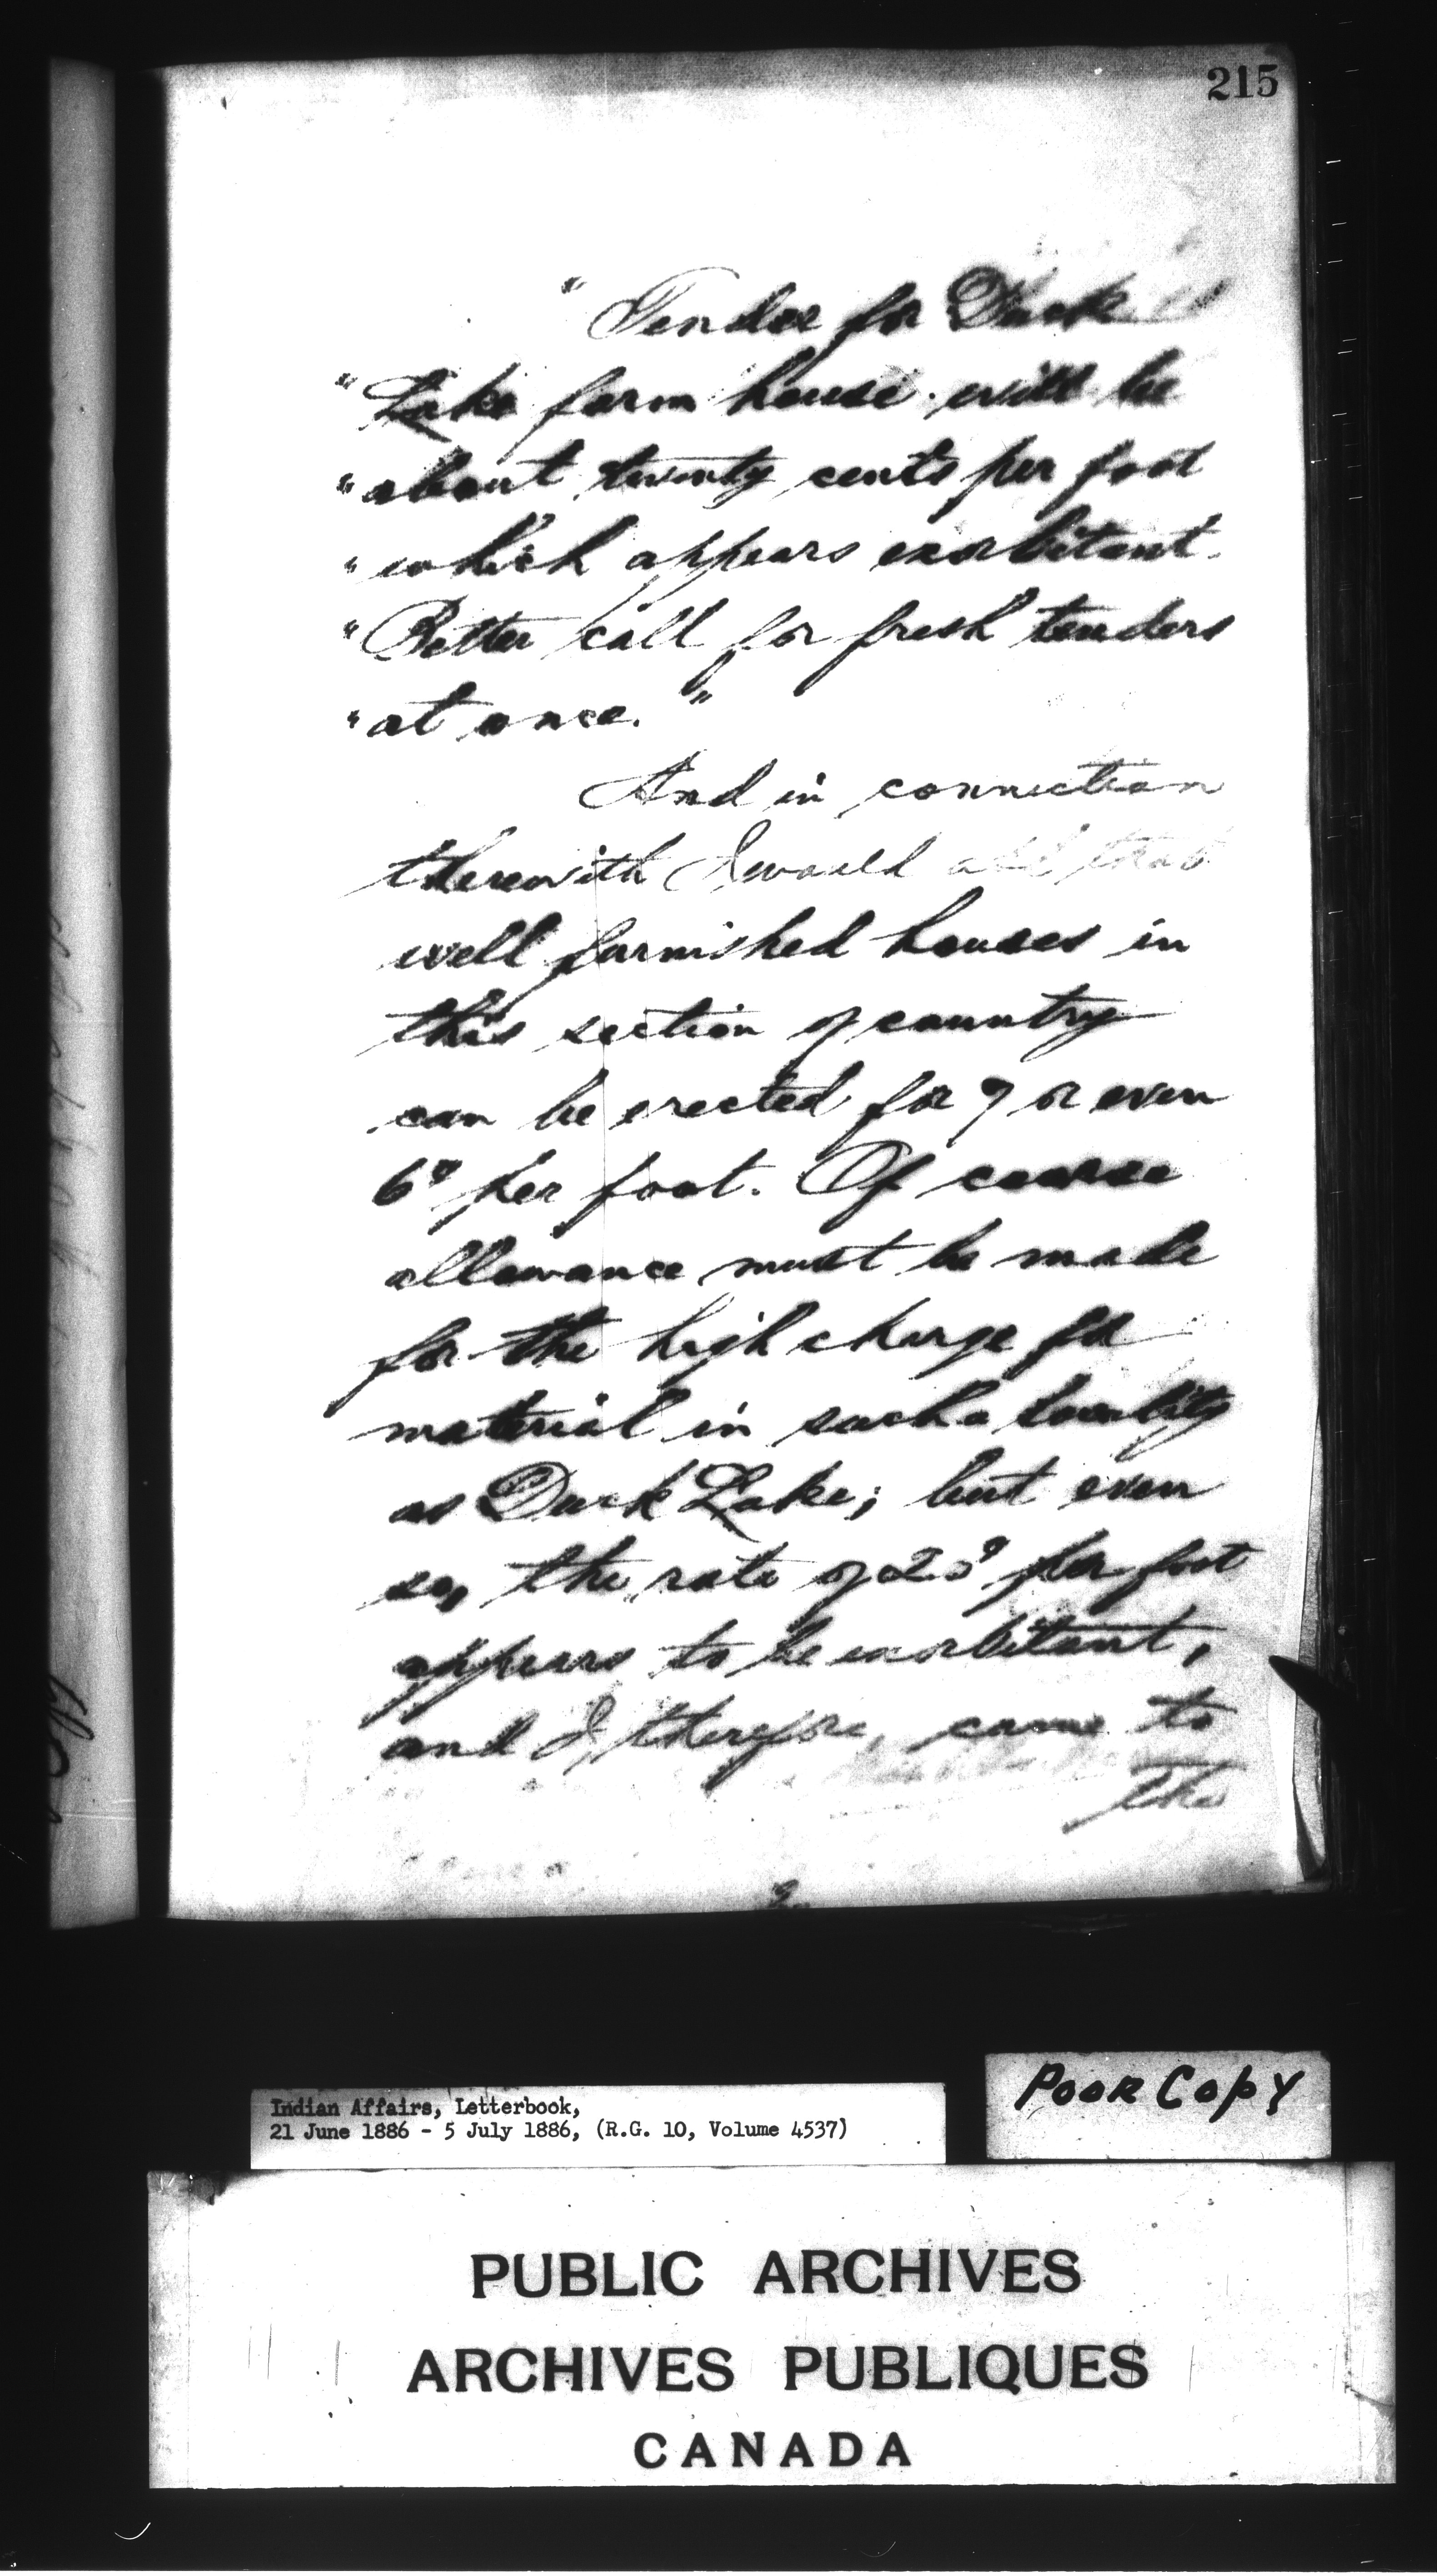 215
" Tender for Duck
" Lake farm house will be
" about twenty cents per foot
" which appears exorbitant.
" Better call for fresh tenders
" at once. "
And in connection
therewith I would add that
well furnished houses in
this section of country
can be erected for 7 or even
6¢ per foot. Of course
allowance must be made
for the high charge for
material in such a locality
as Duck Lake; but even
so, the rate of 20¢ per foot
appears to be exorbitant,
and I, therefore, came to
the
Indian Affairs, Letterbook,
21 June 1886 - 5 July 1886, (R.G. 10, Volume 4537)
POOR COPY
PUBLIC ARCHIVES
ARCHIVES PUBLIQUES
CANADA